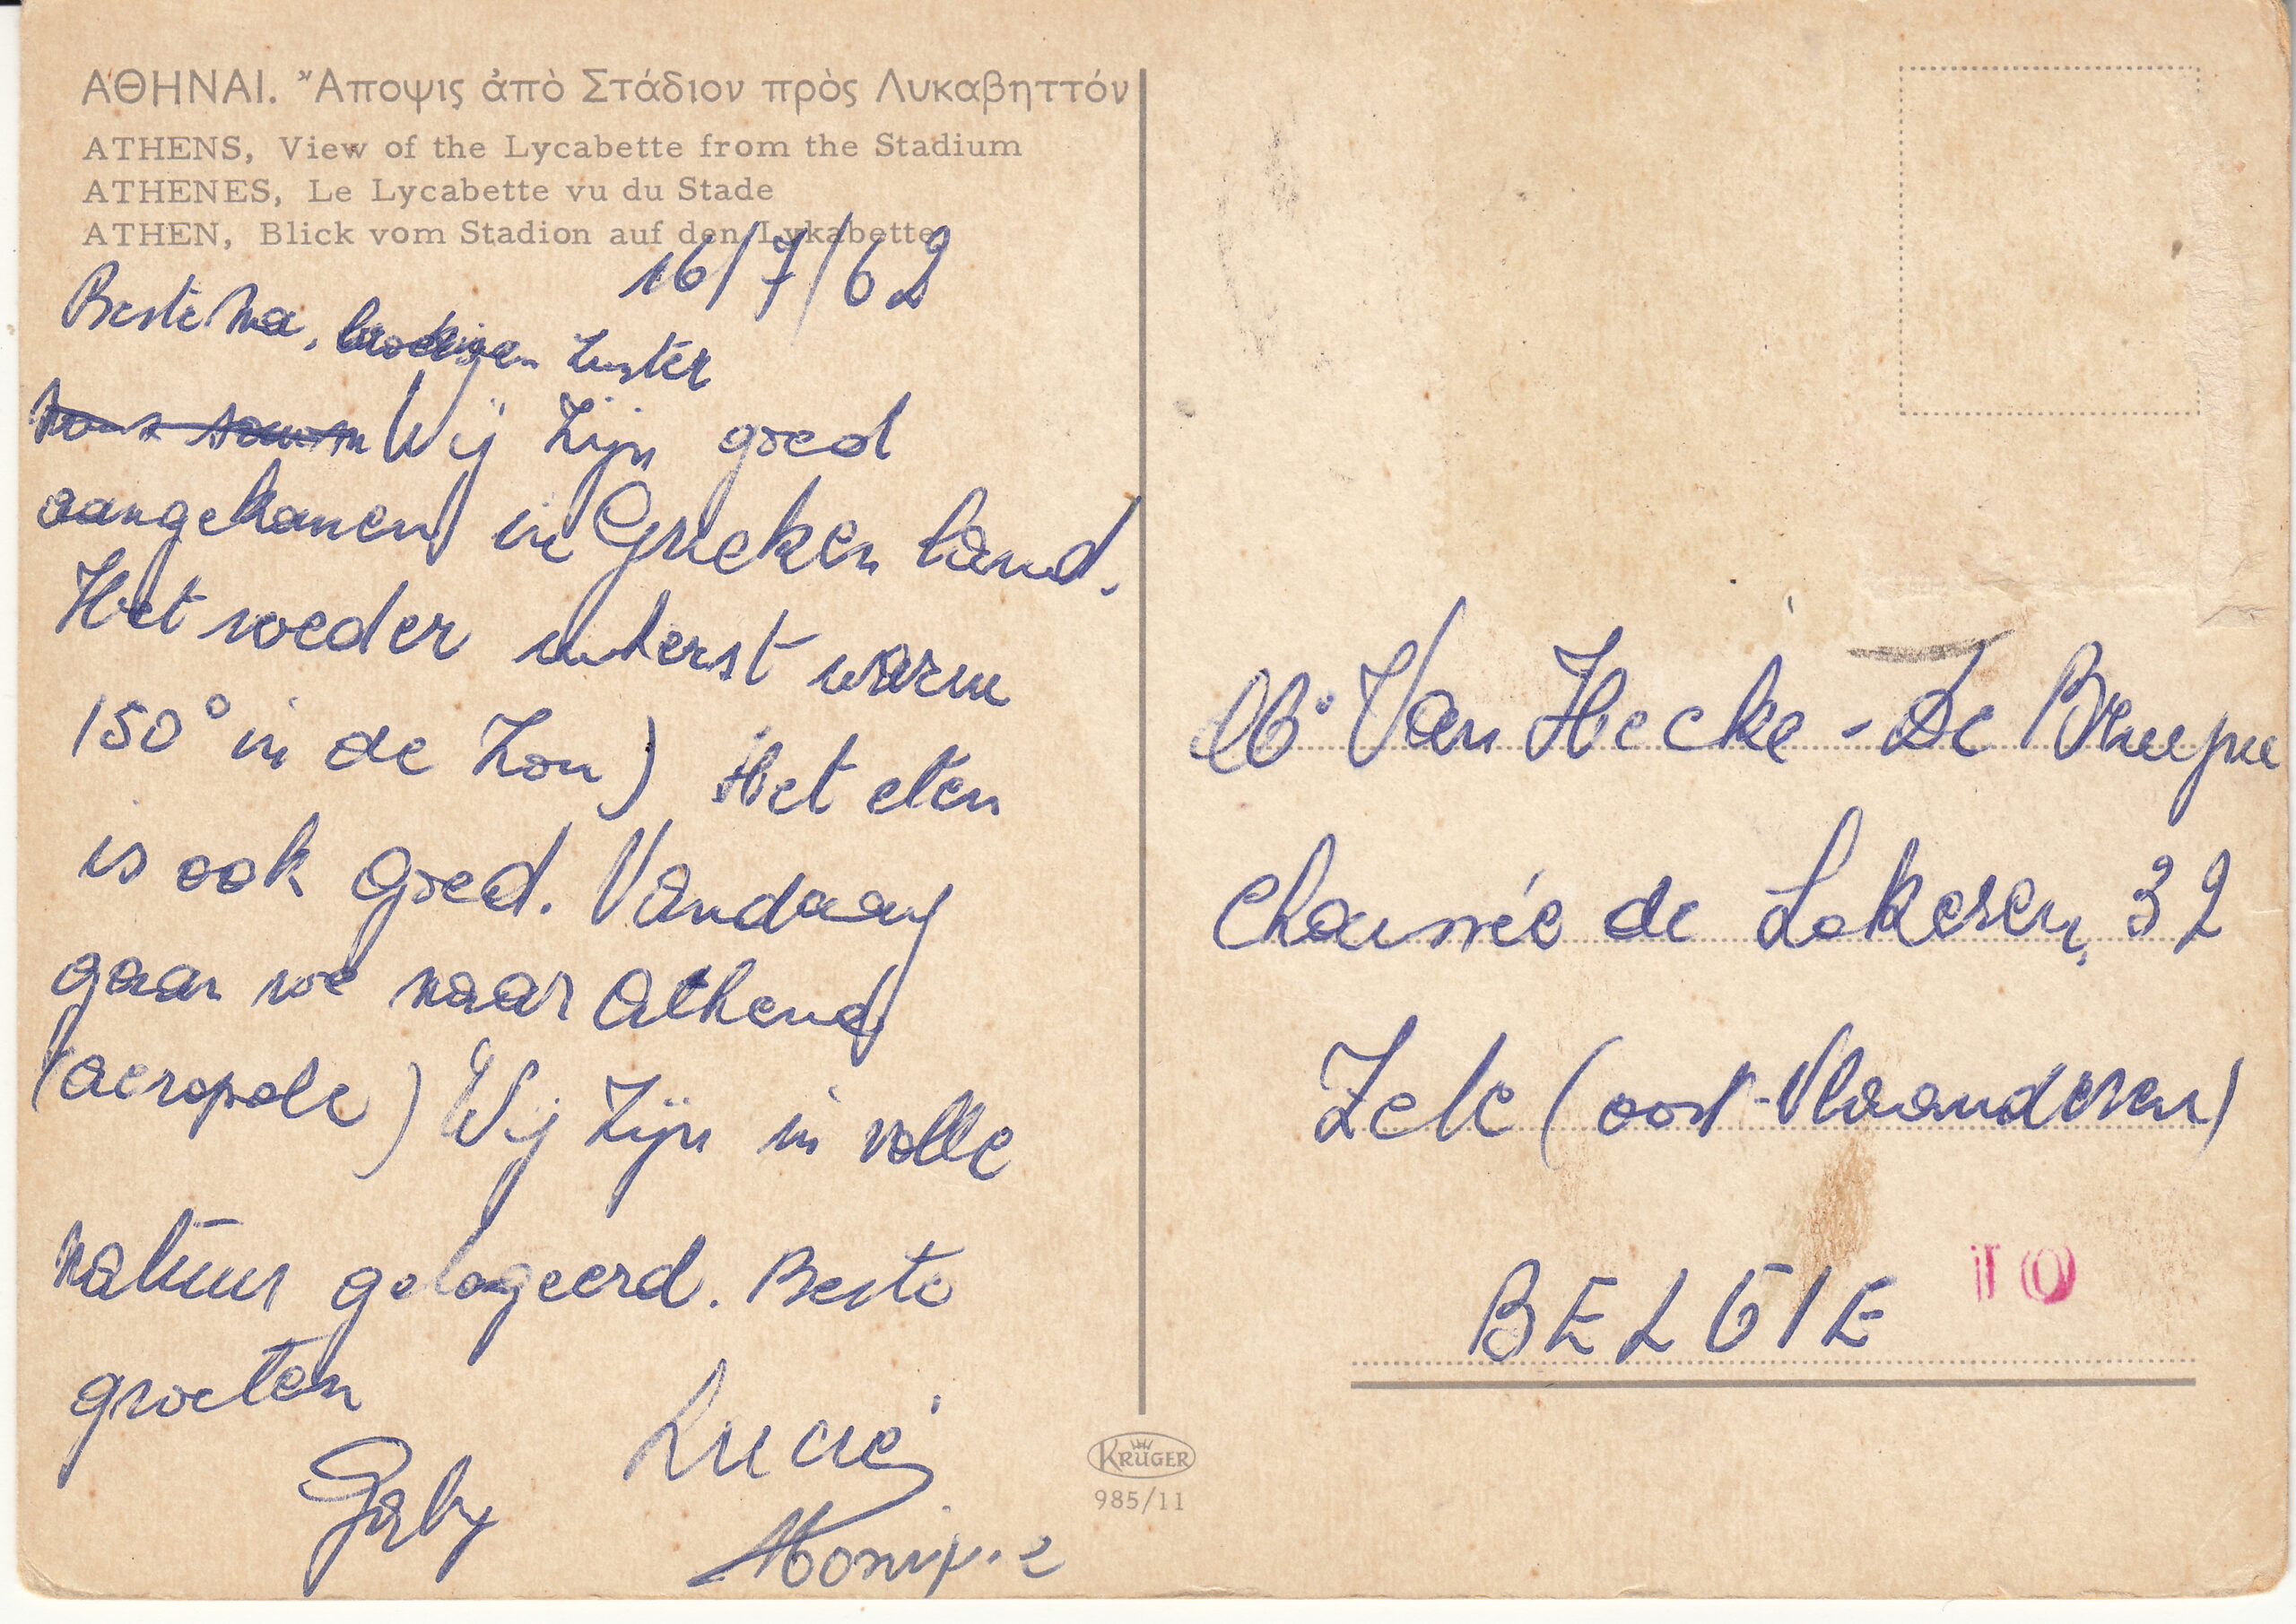 ΑΘΗΝΑΙ. Ἄποψις ἀπὸ Στάδιον πρὸς Λυκαβηττόν
ATHENS, View of the Lycabette from the Stadium
ATHENES, Le Lycabette vu du Stade
ATHEN, Blick vom Stadion auf den Lykabette
16/7/62
Beste Ma, Zuster
Wij Zijn goed
aangekomen in Grieken land.
Het weder uiterst warm
150° in de Zon) Het eten
is ook goed. Vandaag
gaan we naar Athene
(acropole) Wij Zijn in volle
natuur gelogeerd. Beste
groeten
Gaby Lucie
Monique
Van Hecke - De
Chaussée de Lokeren, 32
Zele (oost-Vlaanderen)
BELGIE
KRÜGER
985/11